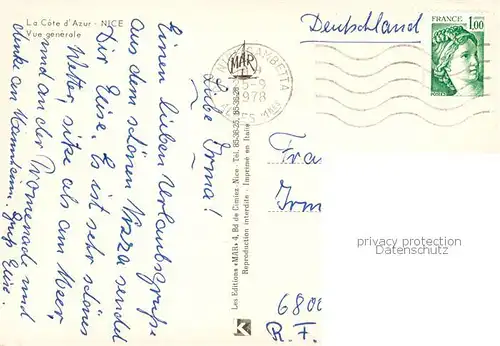 La Côte d'Azur - NICE
Vue générale
Liebe Irma!
Einen lieben Urlaubsgruß
aus dem schönen Nizza sendet
Dir Elise. Es ist sehr schönes
Wetter, sitze oft am Meer,
und an der Promenade und
denke an Mannheim. Gruß Elise.
Les Editions «MAR» 4, Bd de Cimiez - Nice - Tél. 85-36-25, 85-38-28
Reproduction interdite - Imprimé en Italie
MAR
K
Deutschland
GAMBETTA
1978
FRANCE
1,00
POSTES
Fra
Irm
680
B. F.
privacy protection
Datenschutz